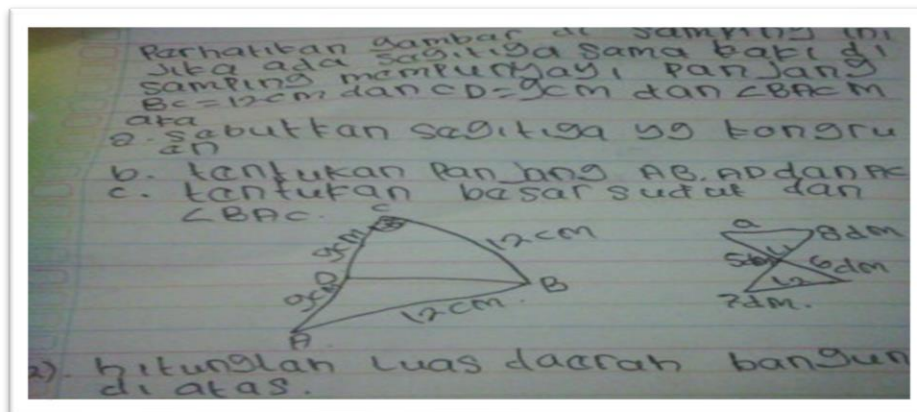 Perhatikan gambar di samping ini
Jika ada sagitiga sama kaki di
samping mempunyayi panjang
BC=12cm dan CD=9cm dan ∠BAC M
aka
a. sabutkan sagitiga yg kongru
an
b. tentukan Panjang AB. AD dan AC
c. tentukan besar sudut dan
∠BAC.
C
9cm
12cm
D
9cm
B
12cm
A
a
8dm
6dm
12
7dm.
2). hitunglah luas daerah bangun
di atas.